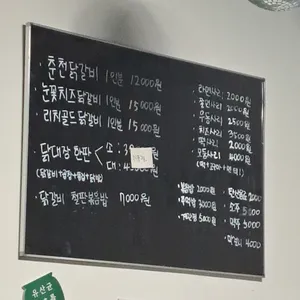 · 춘천닭갈비 1인분 12000원
· 눈꽃치즈닭갈비 1인분 15000원
· 리치골드닭갈비 1인분 15000원
· 닭대장 한판 < 소 :
대 :
· 닭갈비 철판볶음밥 7000원
· 라면사리 2000원
· 쫄면사리 2000원
· 우동사리 2500원
· 치즈사리 3500원
· 떡사리 2000원
· 모듬사리 4000원
· 볶음밥 2000원
· 주먹밥 3000원
· 계란찜 3000원
· 탄산음료 2000
· 소주 5000
· 맥주 5000
· 막걸리 4000
유산균